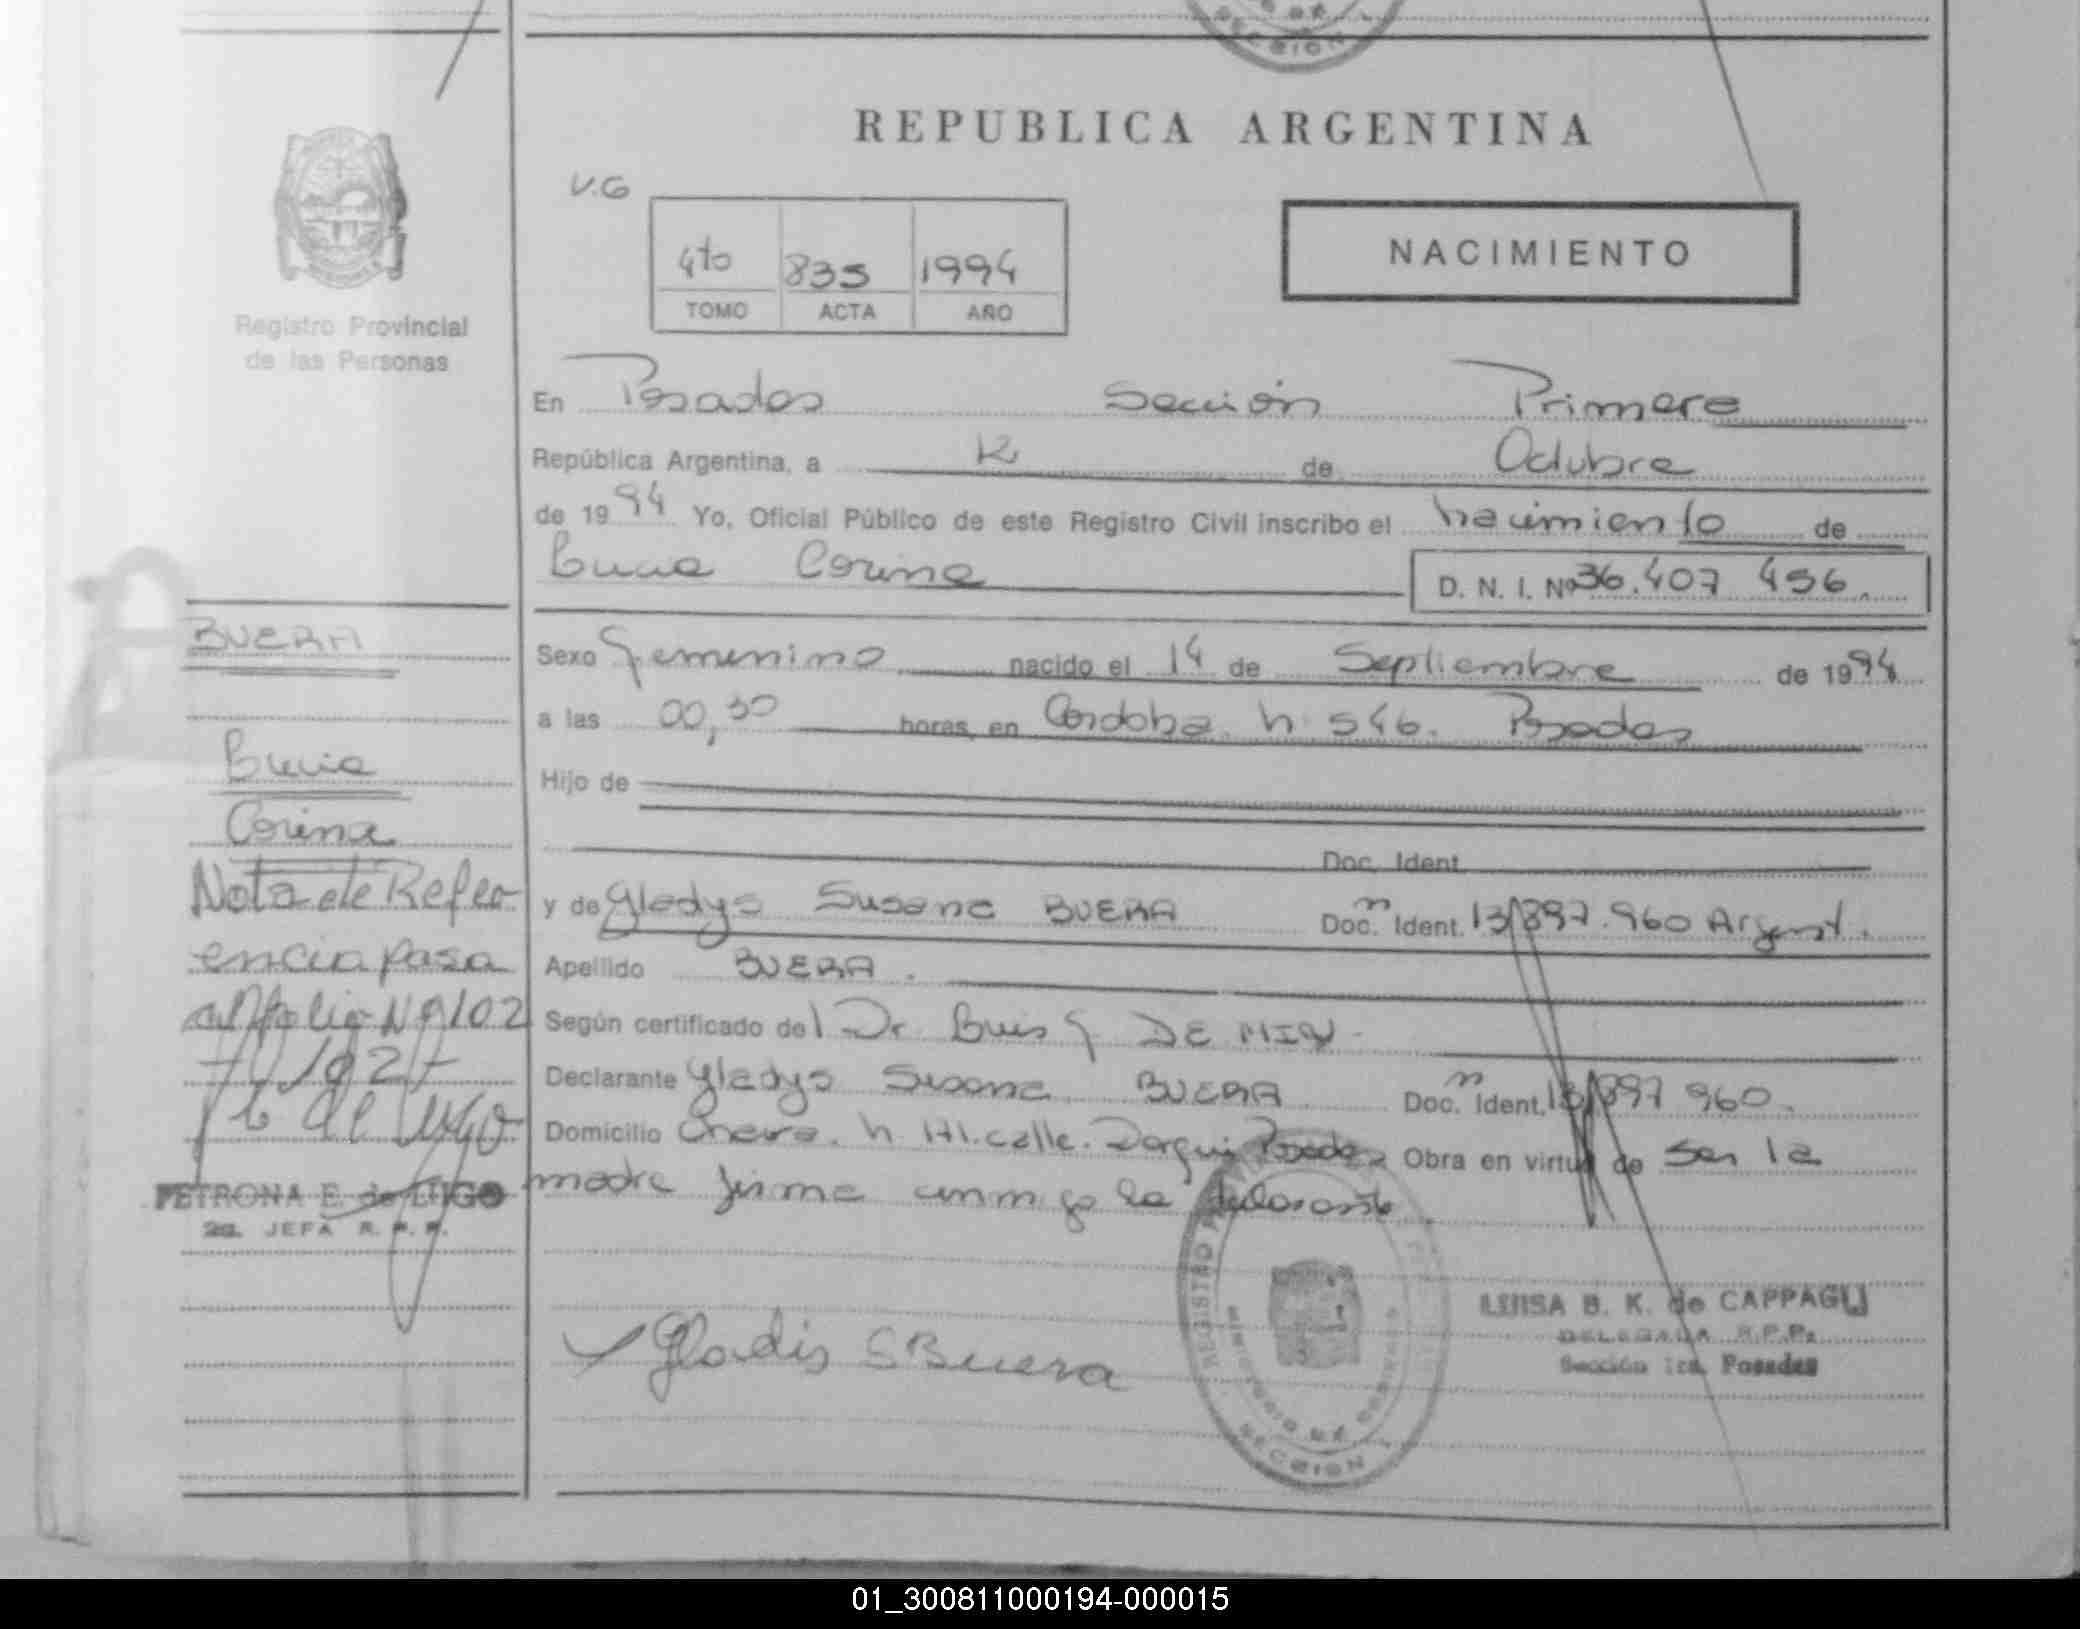 REPUBLICA ARGENTINA
V.G
4to 835 1994
TOMO ACTA AÑO
NACIMIENTO
Registro Provincial
de las Personas
En Posadas Sección Primera
República Argentina, a 12 de Octubre
de 1994 Yo, Oficial Público de este Registro Civil inscribo el nacimiento de
Lucia Corina D. N. I. Nº 36.407 456
Sexo femenino nacido el 14 de Septiembre de 1994
a las 00,30 horas, en Cordoba n 546. Posadas
Hijo de
Doc. Ident.
y de Gladys Susana BUERA Doc. Ident. 13.897.960 Argent.
Apellido BUERA.
Según certificado del Dr Luis G DE
Declarante Gladys Susana BUERA Doc. Ident. 13.897 960.
Domicilio n calle Posadas Obra en virtud de ser la
madre firma conmigo la declarante
Gladis S Buera
REGISTRO
MINISTERIO DE GOBIERNO
SECCION 1
LUISA B. K. de CAPPAGLI
DELEGADA R.P.P.
Sección 1ra. Posadas
BUERA
Lucia
Corina
Nota de Refer
encia pasa
al folio Nº 102
PETRONA E. de LUGO
JEFA R. P. P.
SECCION
01_300811000194-000015